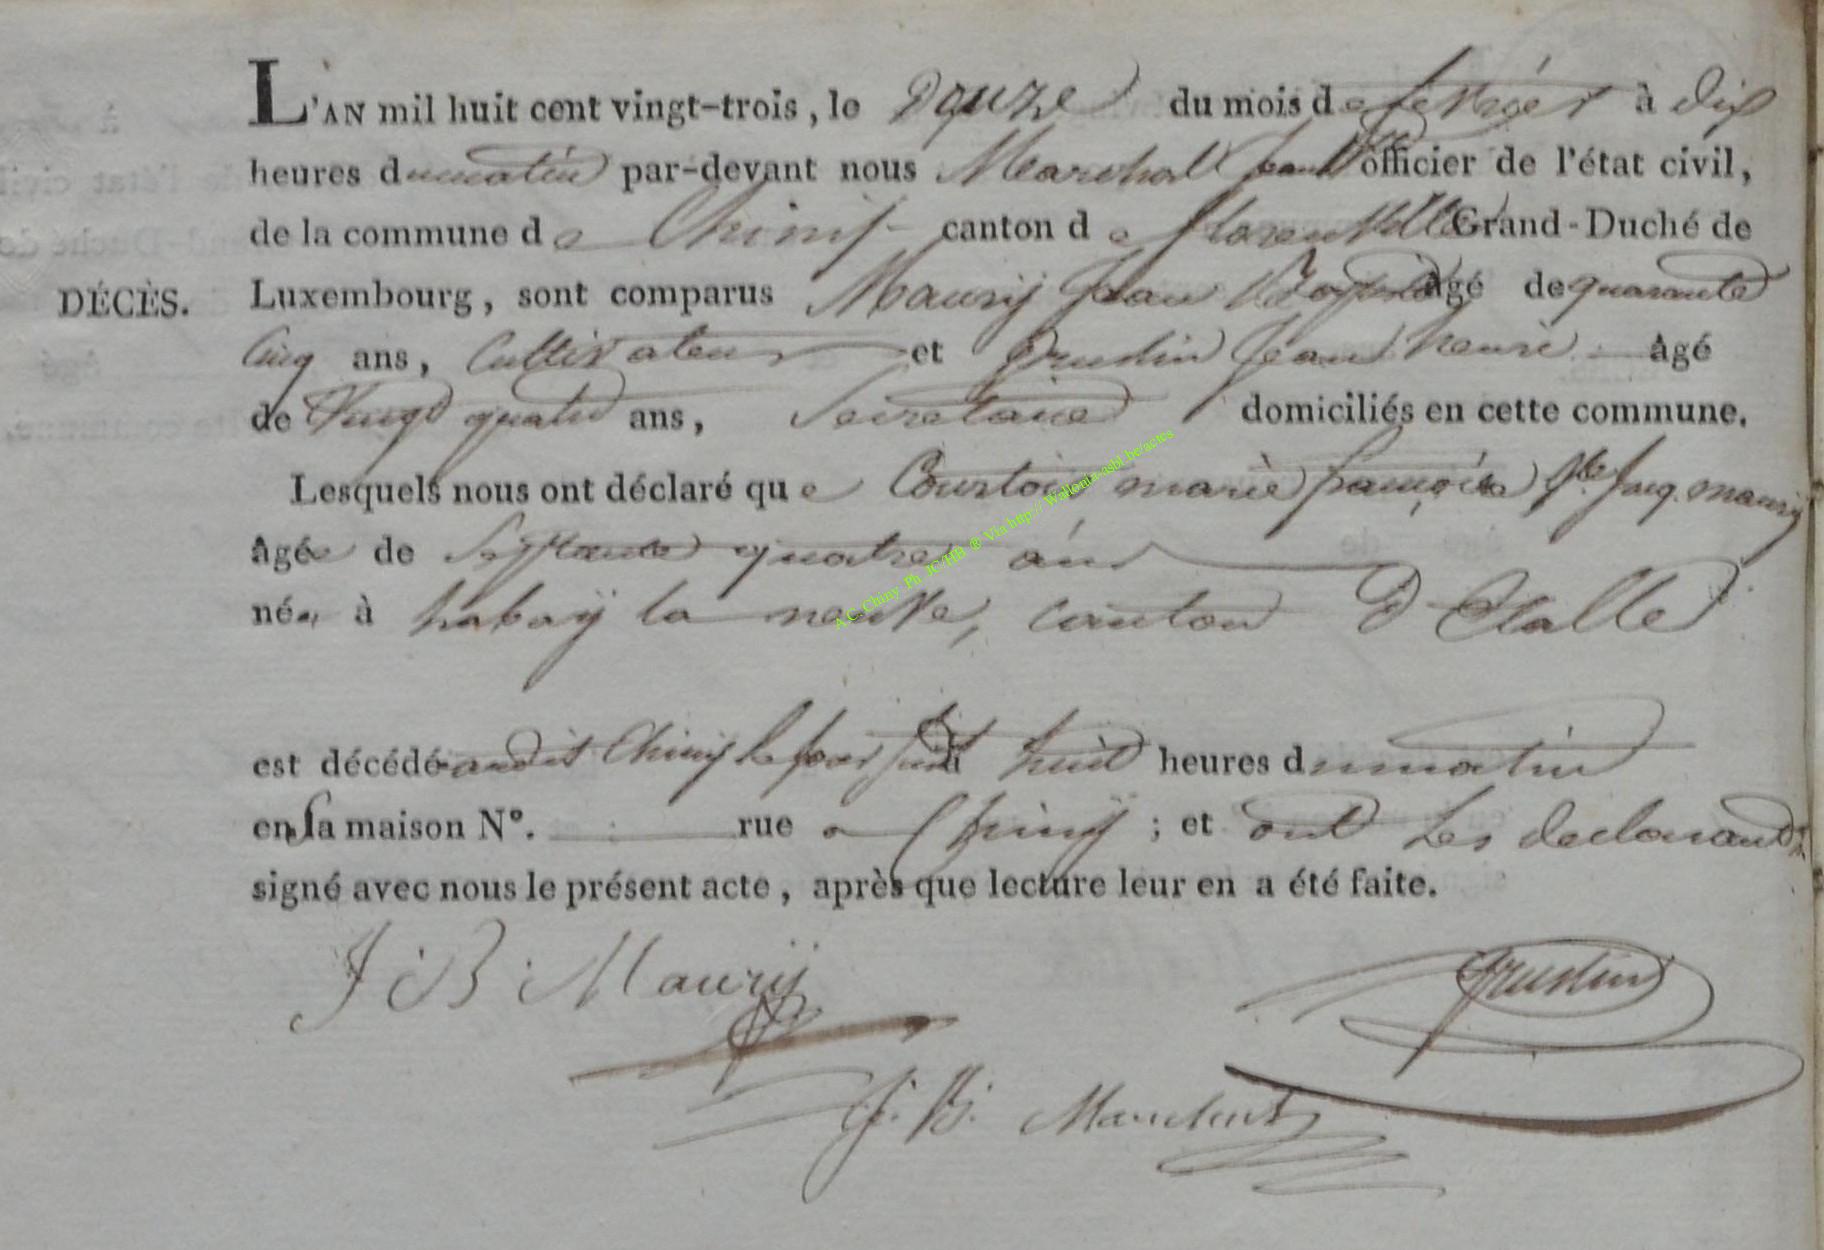 L'AN mil huit cent vingt-trois, le Douze du mois de fevrier à dix
heures dumatin par-devant nous Marchal Jean officier de l'état civil,
de la commune de Chinÿ canton de florenville Grand-Duché de
DÉCÈS. Luxembourg, sont comparus Maurÿ Jean Baptiste âgé de quarante
Cinq ans, Cultivateur et Jean henri âgé
de Vingt quatre ans, Secretaire domiciliés en cette commune.
Lesquels nous ont déclaré que Courtois marie françoise Jacq. maurÿ
âgée de Septante quatre ans
née à habaÿ la neuve, canton D'Etalle
est décédé audit Chinÿ le jour à huit heures dumatin
en sa maison N°. rue a Chinÿ ; et ont Les declarants
signé avec nous le présent acte, après que lecture leur en a été faite.
J B Maurÿ
J. B. Marchal
A.C. Chiny .Ph JC/HB ® Via http://Wallonia-asbl.be/actes